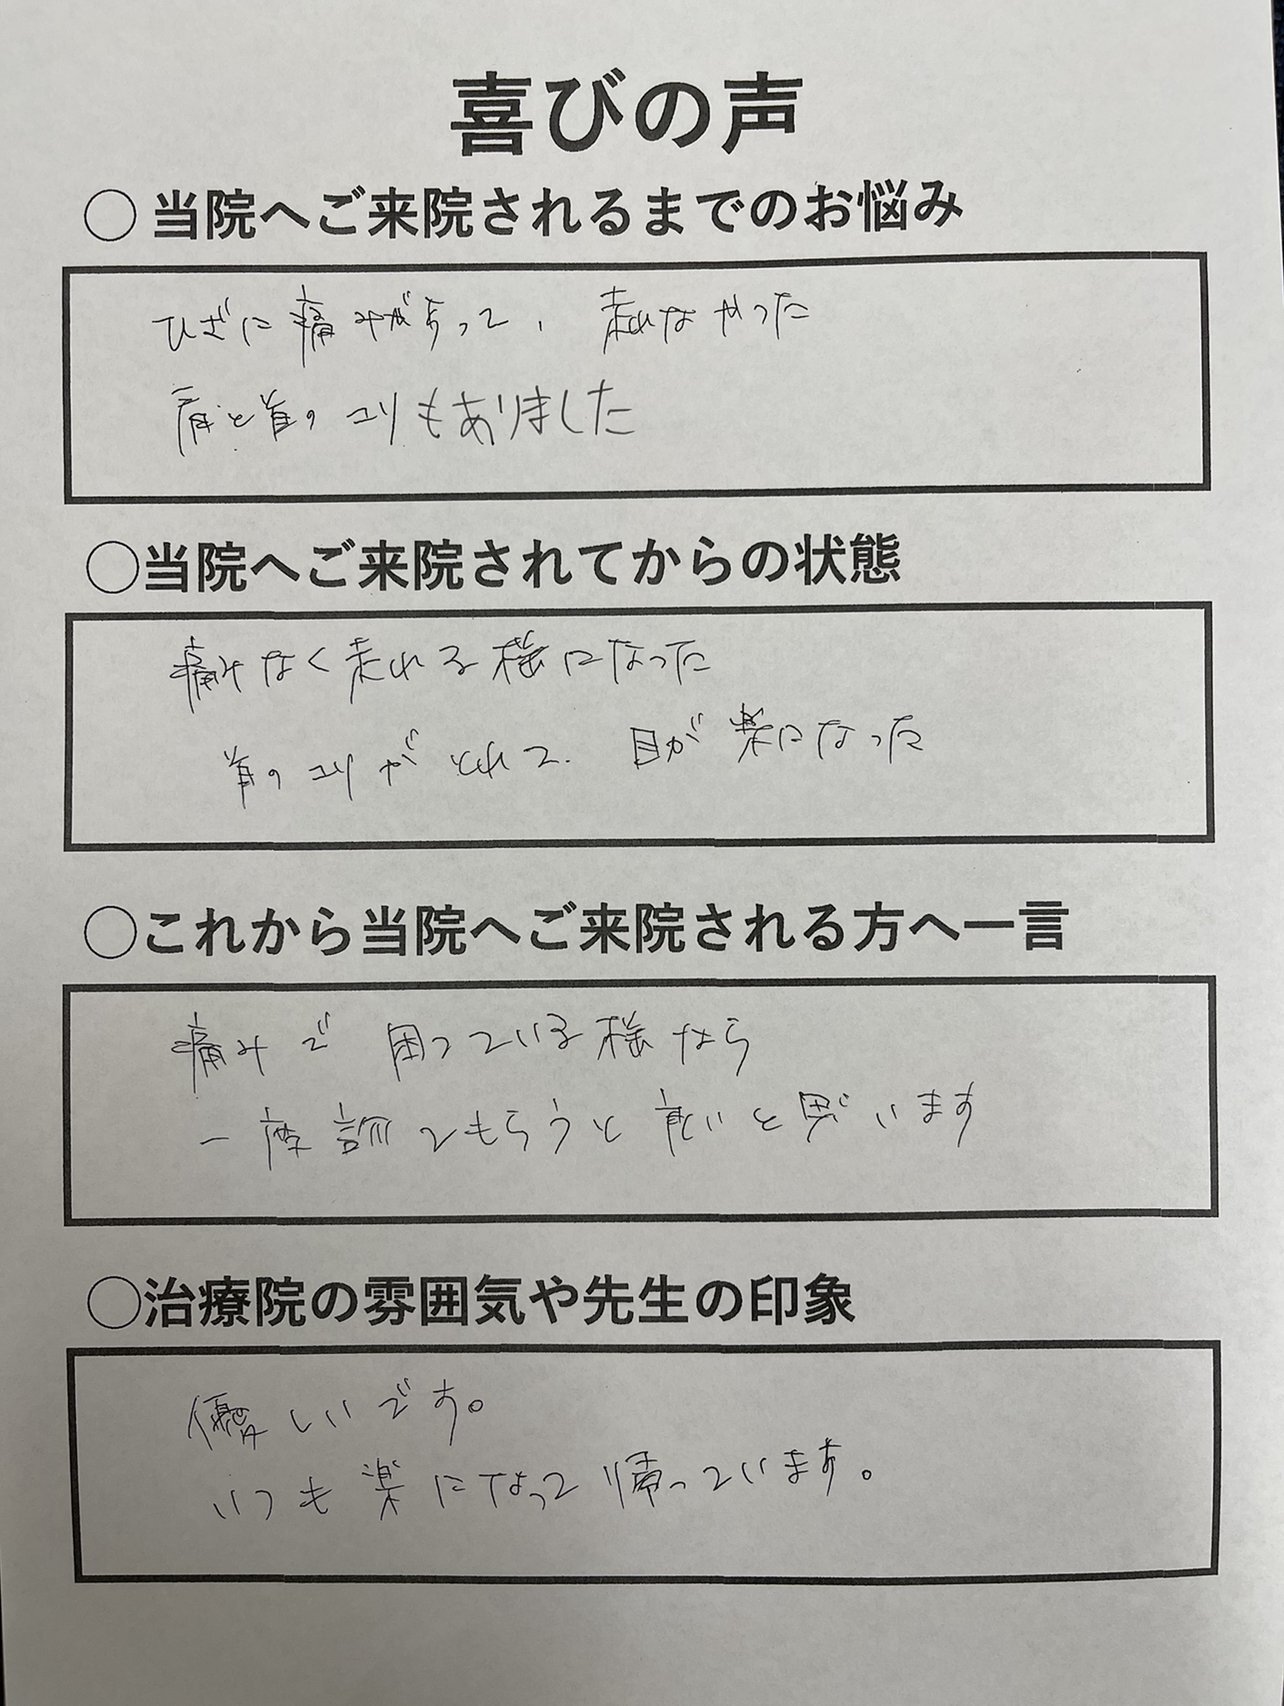 喜びの声
○ 当院へご来院されるまでのお悩み
ひざに痛みがあって、走れなかった
肩と首のコリもありました
○当院へご来院されてからの状態
痛みなく走れる様になった
首のコリがとれて、目が楽になった
○これから当院へご来院される方へ一言
痛みで困っている様なら
一度診てもらうと良いと思います
○治療院の雰囲気や先生の印象
優しいです。
いつも楽になって帰っています。